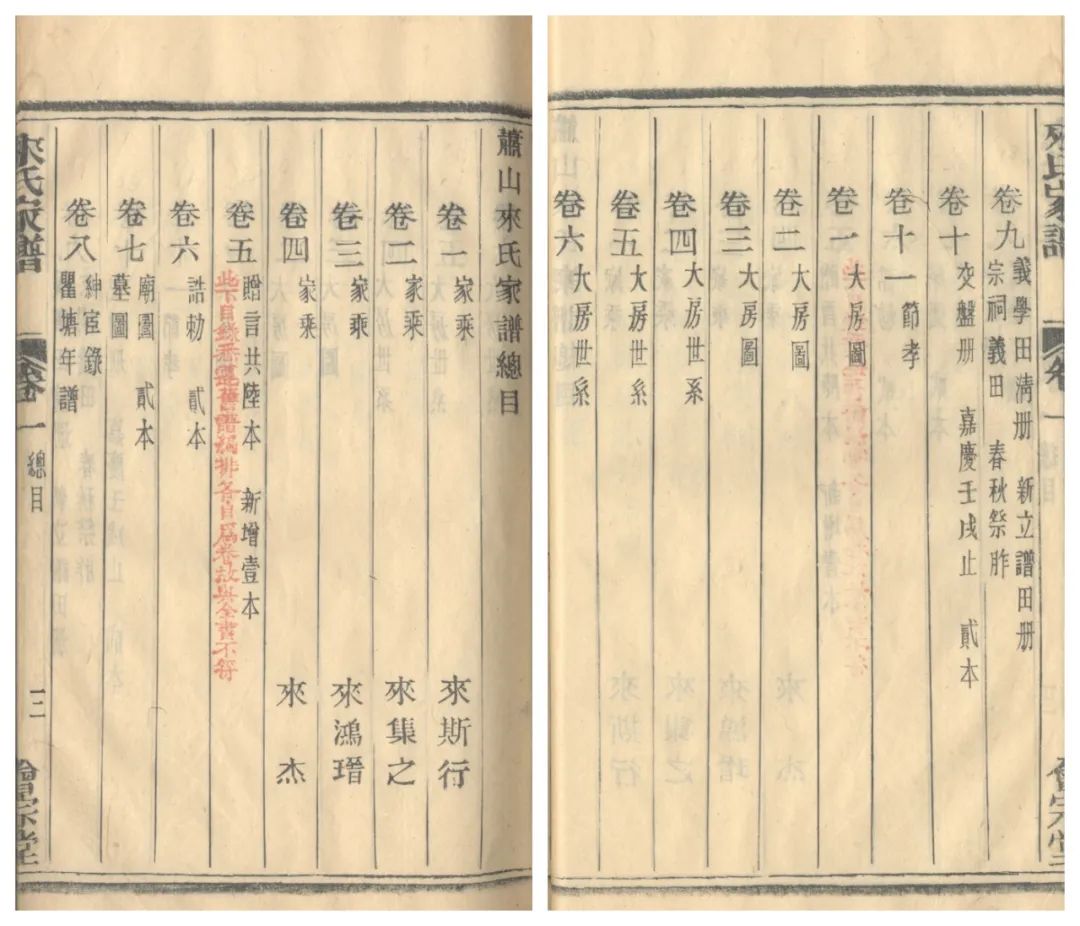 蕭山來氏家譜總目
卷一 家乘 來斯行
卷二 家乘 來集之
卷三 家乘 來鴻瑨
卷四 家乘 來杰
卷五 贈言共陸本 新增壹本
此下目錄悉遵舊譜編排各自爲卷故與全書不符
卷六 誥勅 貳本
卷七 廟圖 貳本
墓圖
卷八 紳宦錄
瞿塘年譜
來氏家譜 卷一 總目 三 會宗堂
來氏家譜 卷一 會宗堂
卷九 義學田清册 新立譜田册
宗祠義田 春秋祭胙
卷十 交盤册 嘉慶壬戌止 貳本
卷十一 節孝
卷一 大房圖
卷二 大房圖
卷三 大房圖
卷四 大房世系
卷五 大房世系
卷六 大房世系